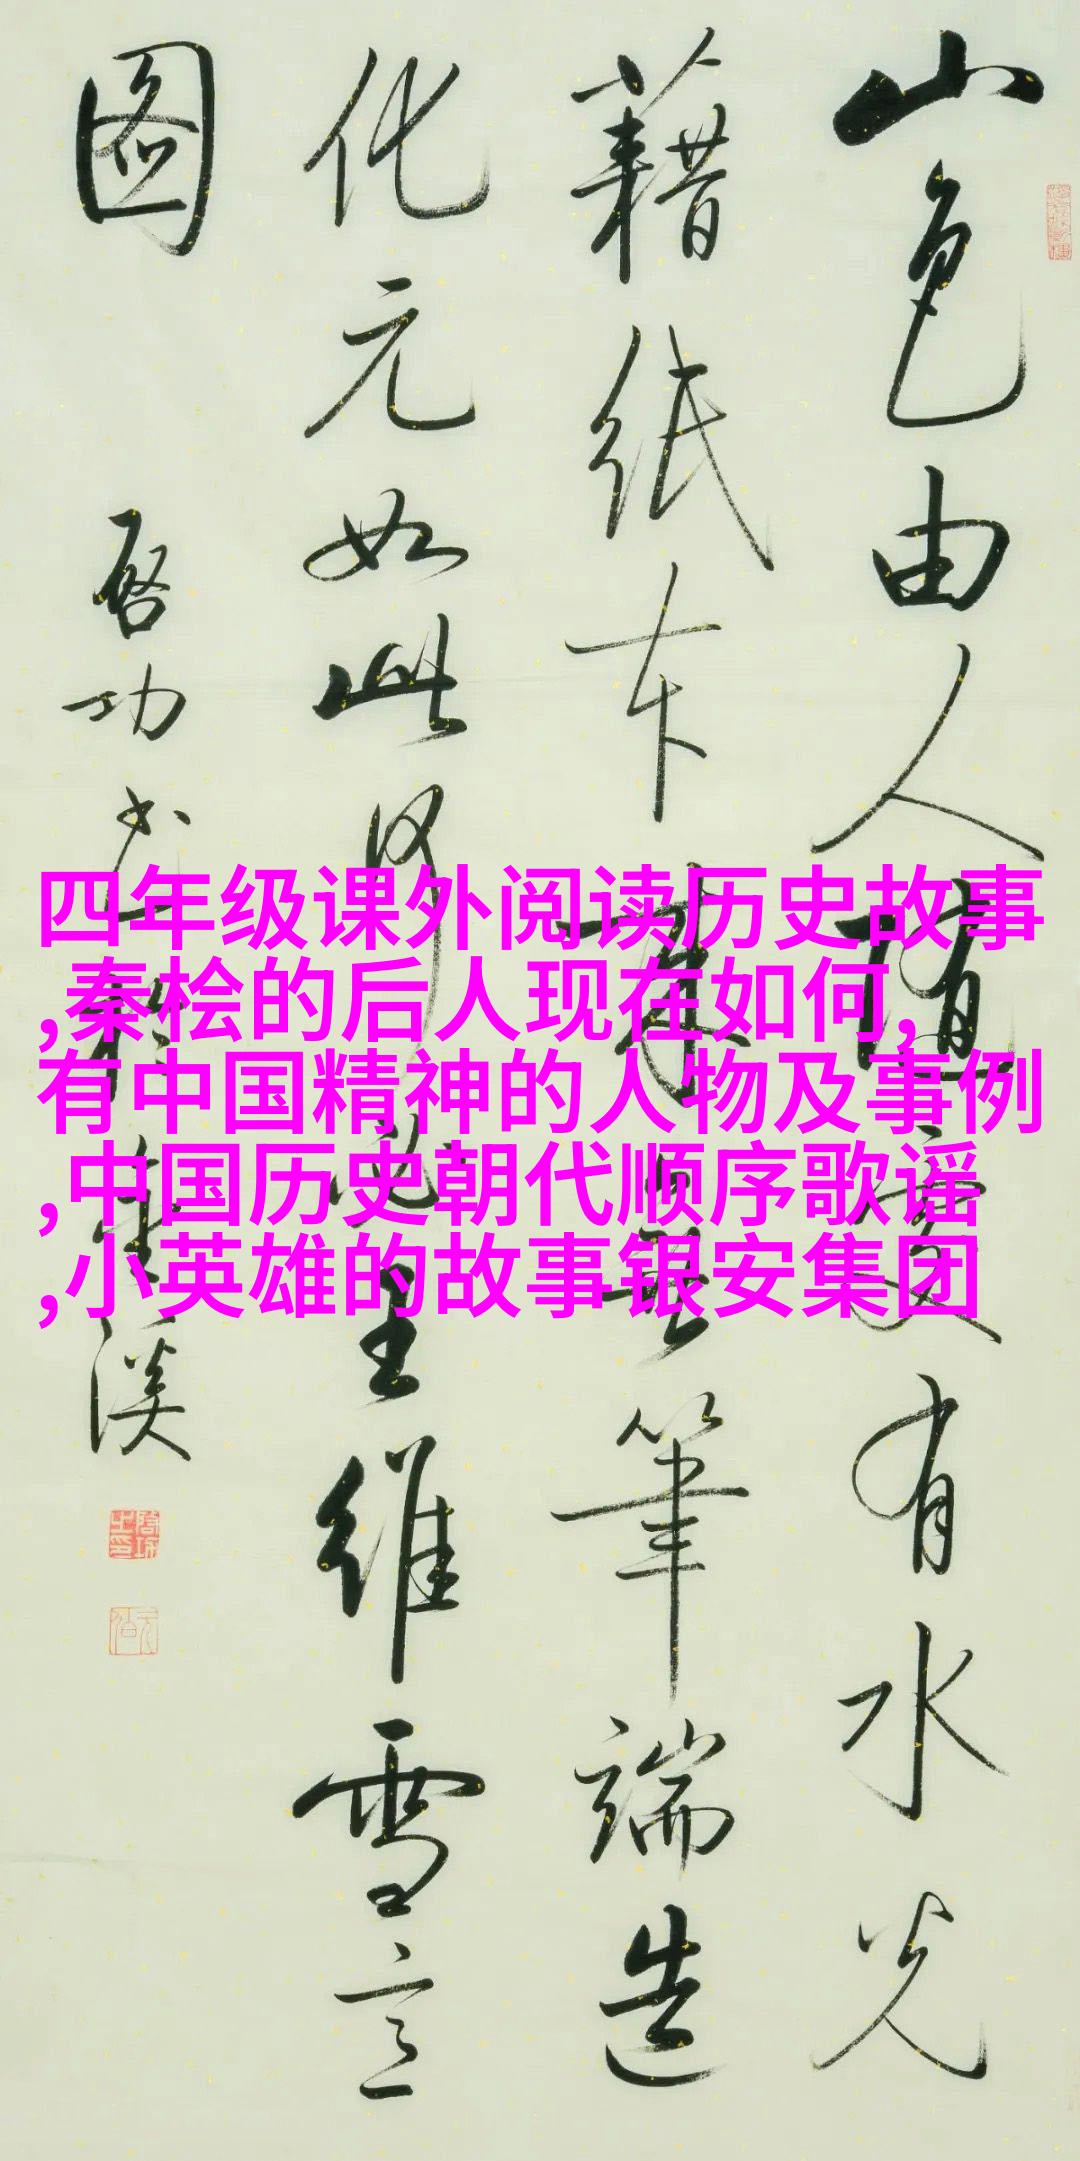 四年级课外阅读历史故事
,秦桧的后人现在如何,
有中国精神的人物及事例
,中国历史朝代顺序歌谣
,小英雄的故事银安集团
山色由人随處有水光
藉纸本来無筆端造
化元如此何必王维雪意
图
启功书